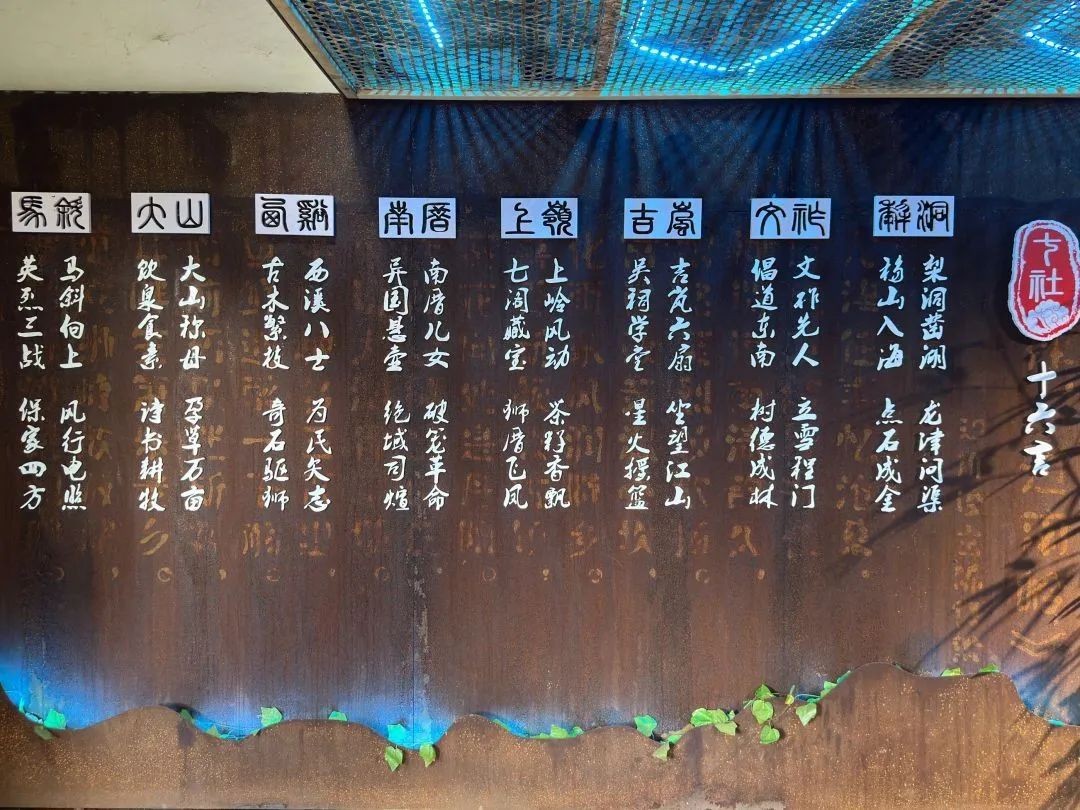 七社
十六言
洞
梨洞凿湖 龙津问渠
移山入海 点石成金
文祚
文祚先人 立雪程门
倡道东南 树德成林
吉
吉瓦六扇 坐望江山
吴祠学堂 星火摇篮
上嶺
上岭风动 茶籽香飘
七阁藏宝 狮厝飞凤
南厝
南厝儿女 破笼革命
异国悬壶 绝域司煊
西谿
西溪八士 为民矢志
古木繁枝 奇石驱狮
大山
大山称母 孕草万亩
饮泉食素 诗书耕牧
馬斜
马斜向上 风行电照
英烈三战 保家四方